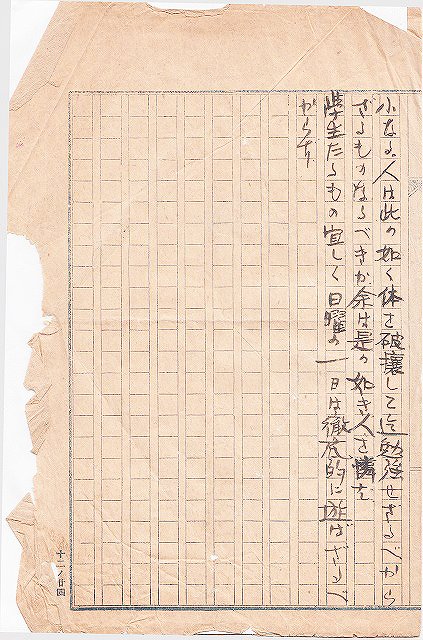 小なる人は此の如く体を破壊して迄勉強せざるべから
ざるものなるべきか余は是の如き人を憐む
学生たるもの宜しく日曜の一日は徹底的に遊ばざるべ
からず
十二ノ廿四